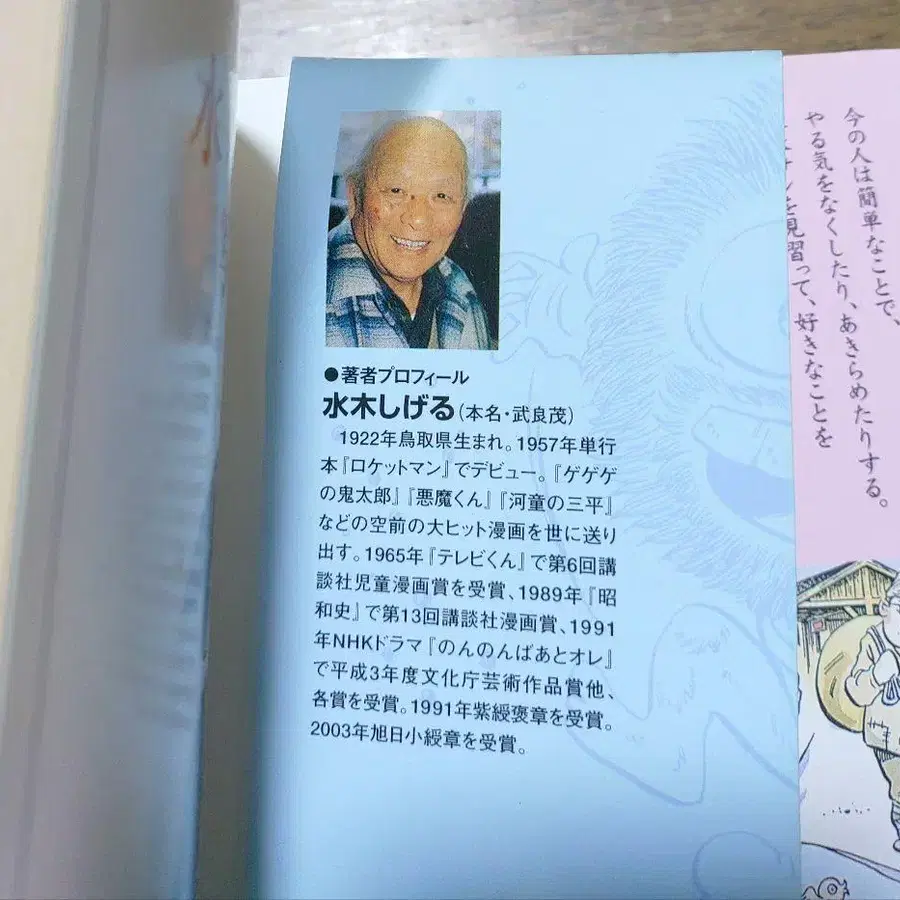 ●著者プロフィール
水木しげる(本名・武良茂)
1922年鳥取県生まれ。1957年単行
本『ロケットマン』でデビュー。『ゲゲゲ
の鬼太郎』『悪魔くん』『河童の三平』
などの空前の大ヒット漫画を世に送り
出す。1965年『テレビくん』で第6回講
談社児童漫画賞を受賞、1989年『昭
和史』で第13回講談社漫画賞、1991
年NHKドラマ『のんのんばあとオレ』
で平成3年度文化庁芸術作品賞他、
各賞を受賞。1991年紫綬褒章を受賞。
2003年旭日小綬章を受賞。
今の人は簡単なことで、
やる気をなくしたり、あきらめたりする。
を見習って、好きなことを
水